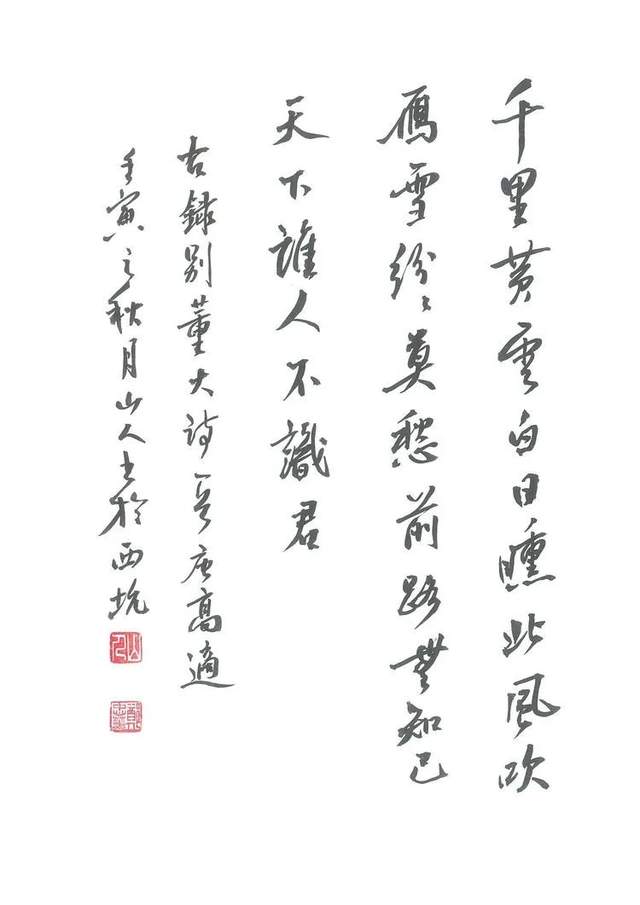 千里黃雲白日曛北風吹
鴈雪紛〻莫愁前路無知己
天下誰人不識君
右錄別董大詩一首唐高適
壬寅之秋月山人书於西坑
山人